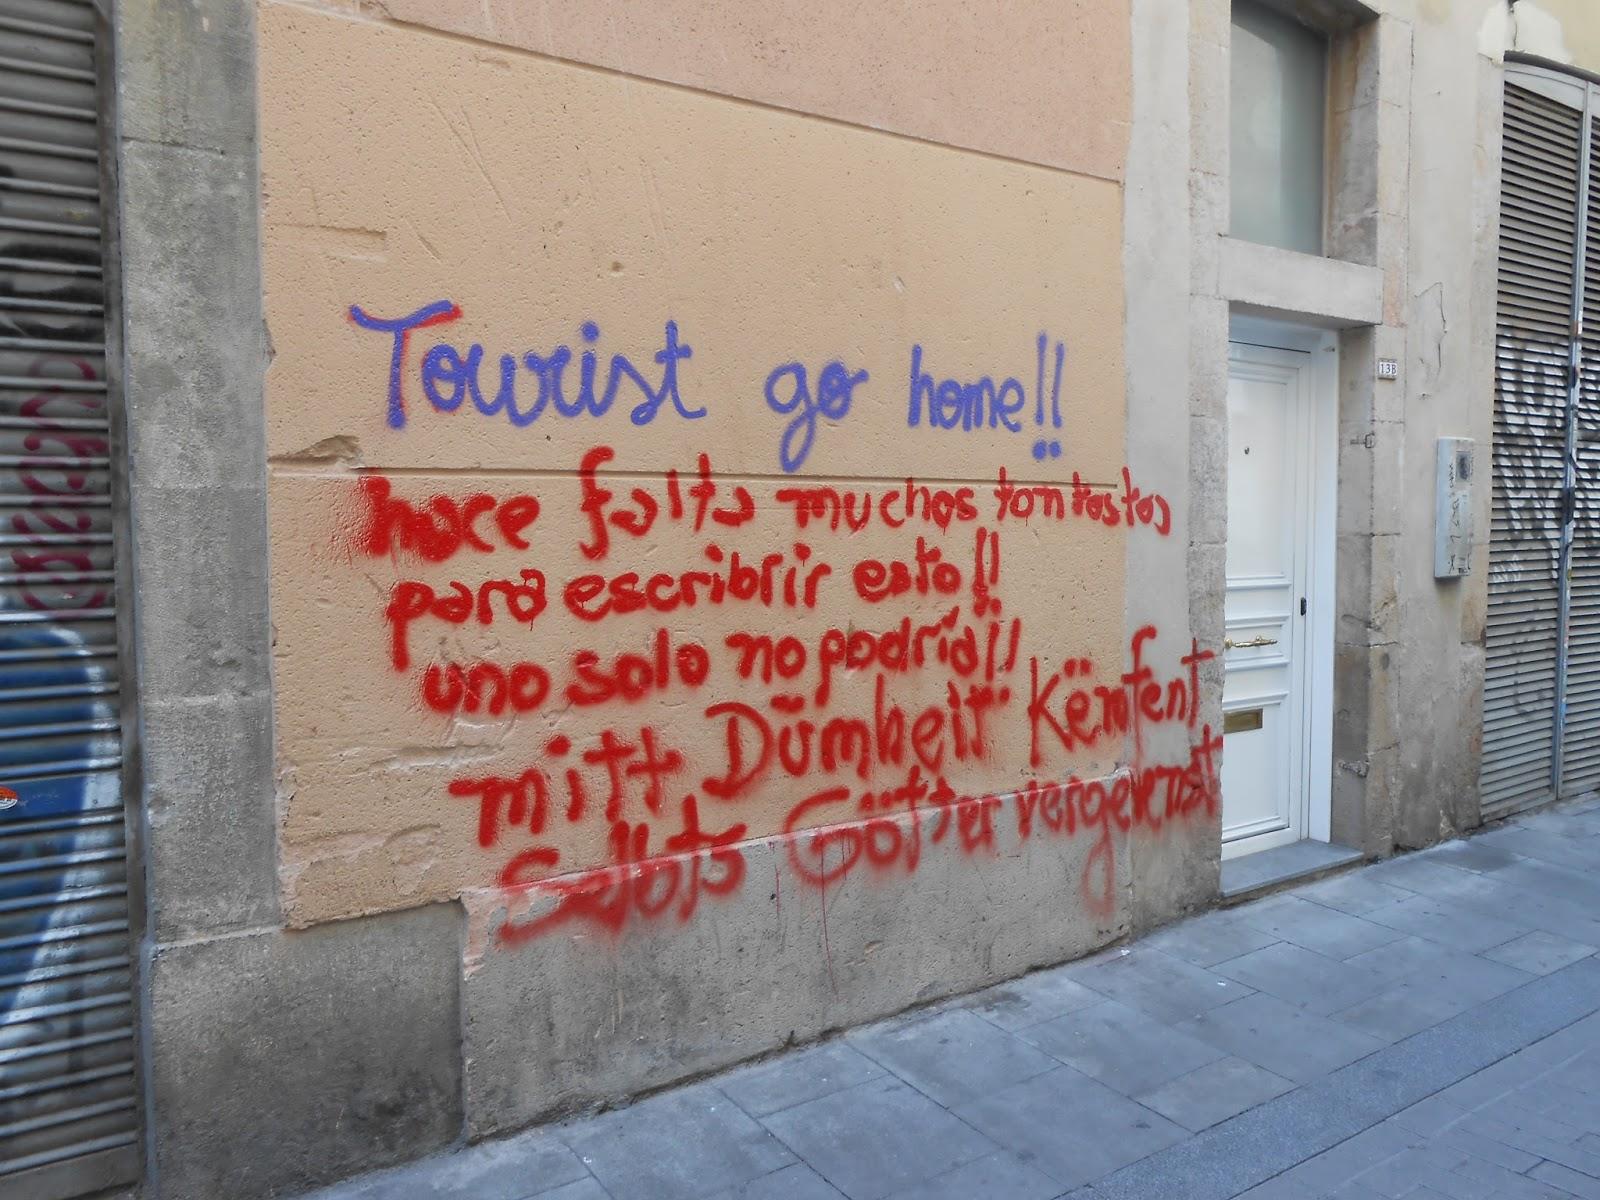 Tourist go home!!
hace falta muchos tontostos
para escribrir esto!!
uno solo no podría!!
mitt Dümheit Këmfent
Selbts Götter vergevenst
13B